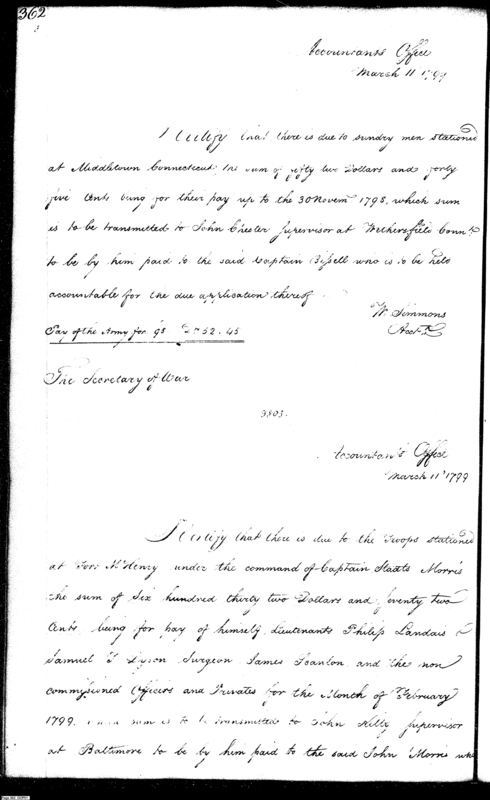 362
Accountants Office
March 11 1799
I Certify that there is due to sundry men stationed
at Middletown Connecticut the sum of fifty two Dollars and forty
five Cents being for their pay up to the 30 Novem 1798, which sum
is to be transmitted to John Chester Supervisor at Wethersfield Connt.
to be by him paid to the said Captain Bissell who is to be held
accountable for the due application thereof
W. Simmons
Acct.
Pay of the Army for 98 Drs 52.45
The Secretary of War
3803.
Accountant's Office
March 11 1799
I Certify that there is due to the Troops stationed
at Fort McHenry under the command of Captain Staats Morris
the sum of Six hundred thirty two Dollars and Seventy two
Cents being for pay of himself, Lieutenants Philip Landais &
Samuel T Dyson Surgeon James Scanlon and the non
commissioned Officers and Privates for the Month of February
1799. which sum is to be transmitted to John Kilty Supervisor
at Baltimore to be by him paid to the said John Morris who